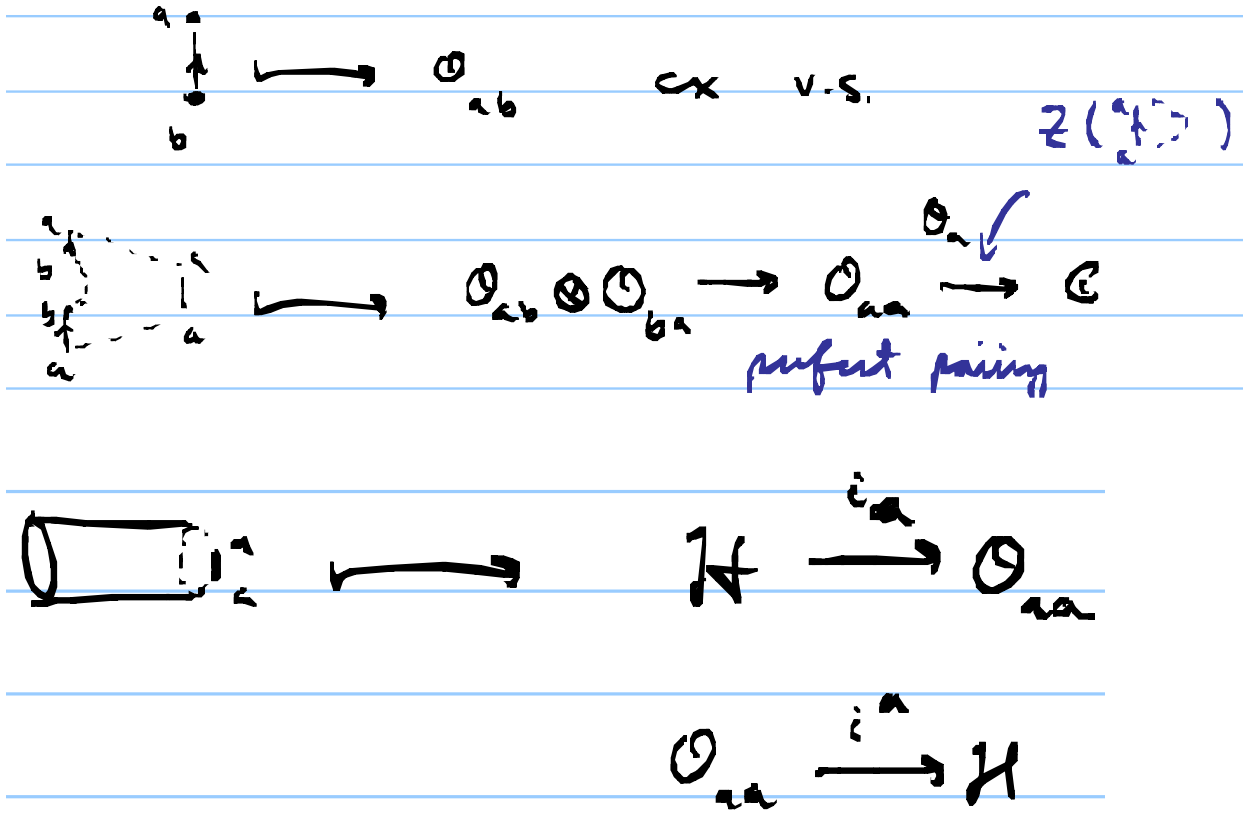 a b ⟼ O_{ab} cx v.s.
Z( a a )
a b b a a a ⟼ O_{ab} ⊗ O_{ba} → O_{aa} → ℂ
θ_a
perfect pairing
a a ⟼ H → O_{aa}
i_a
O_{aa} → H
i^a